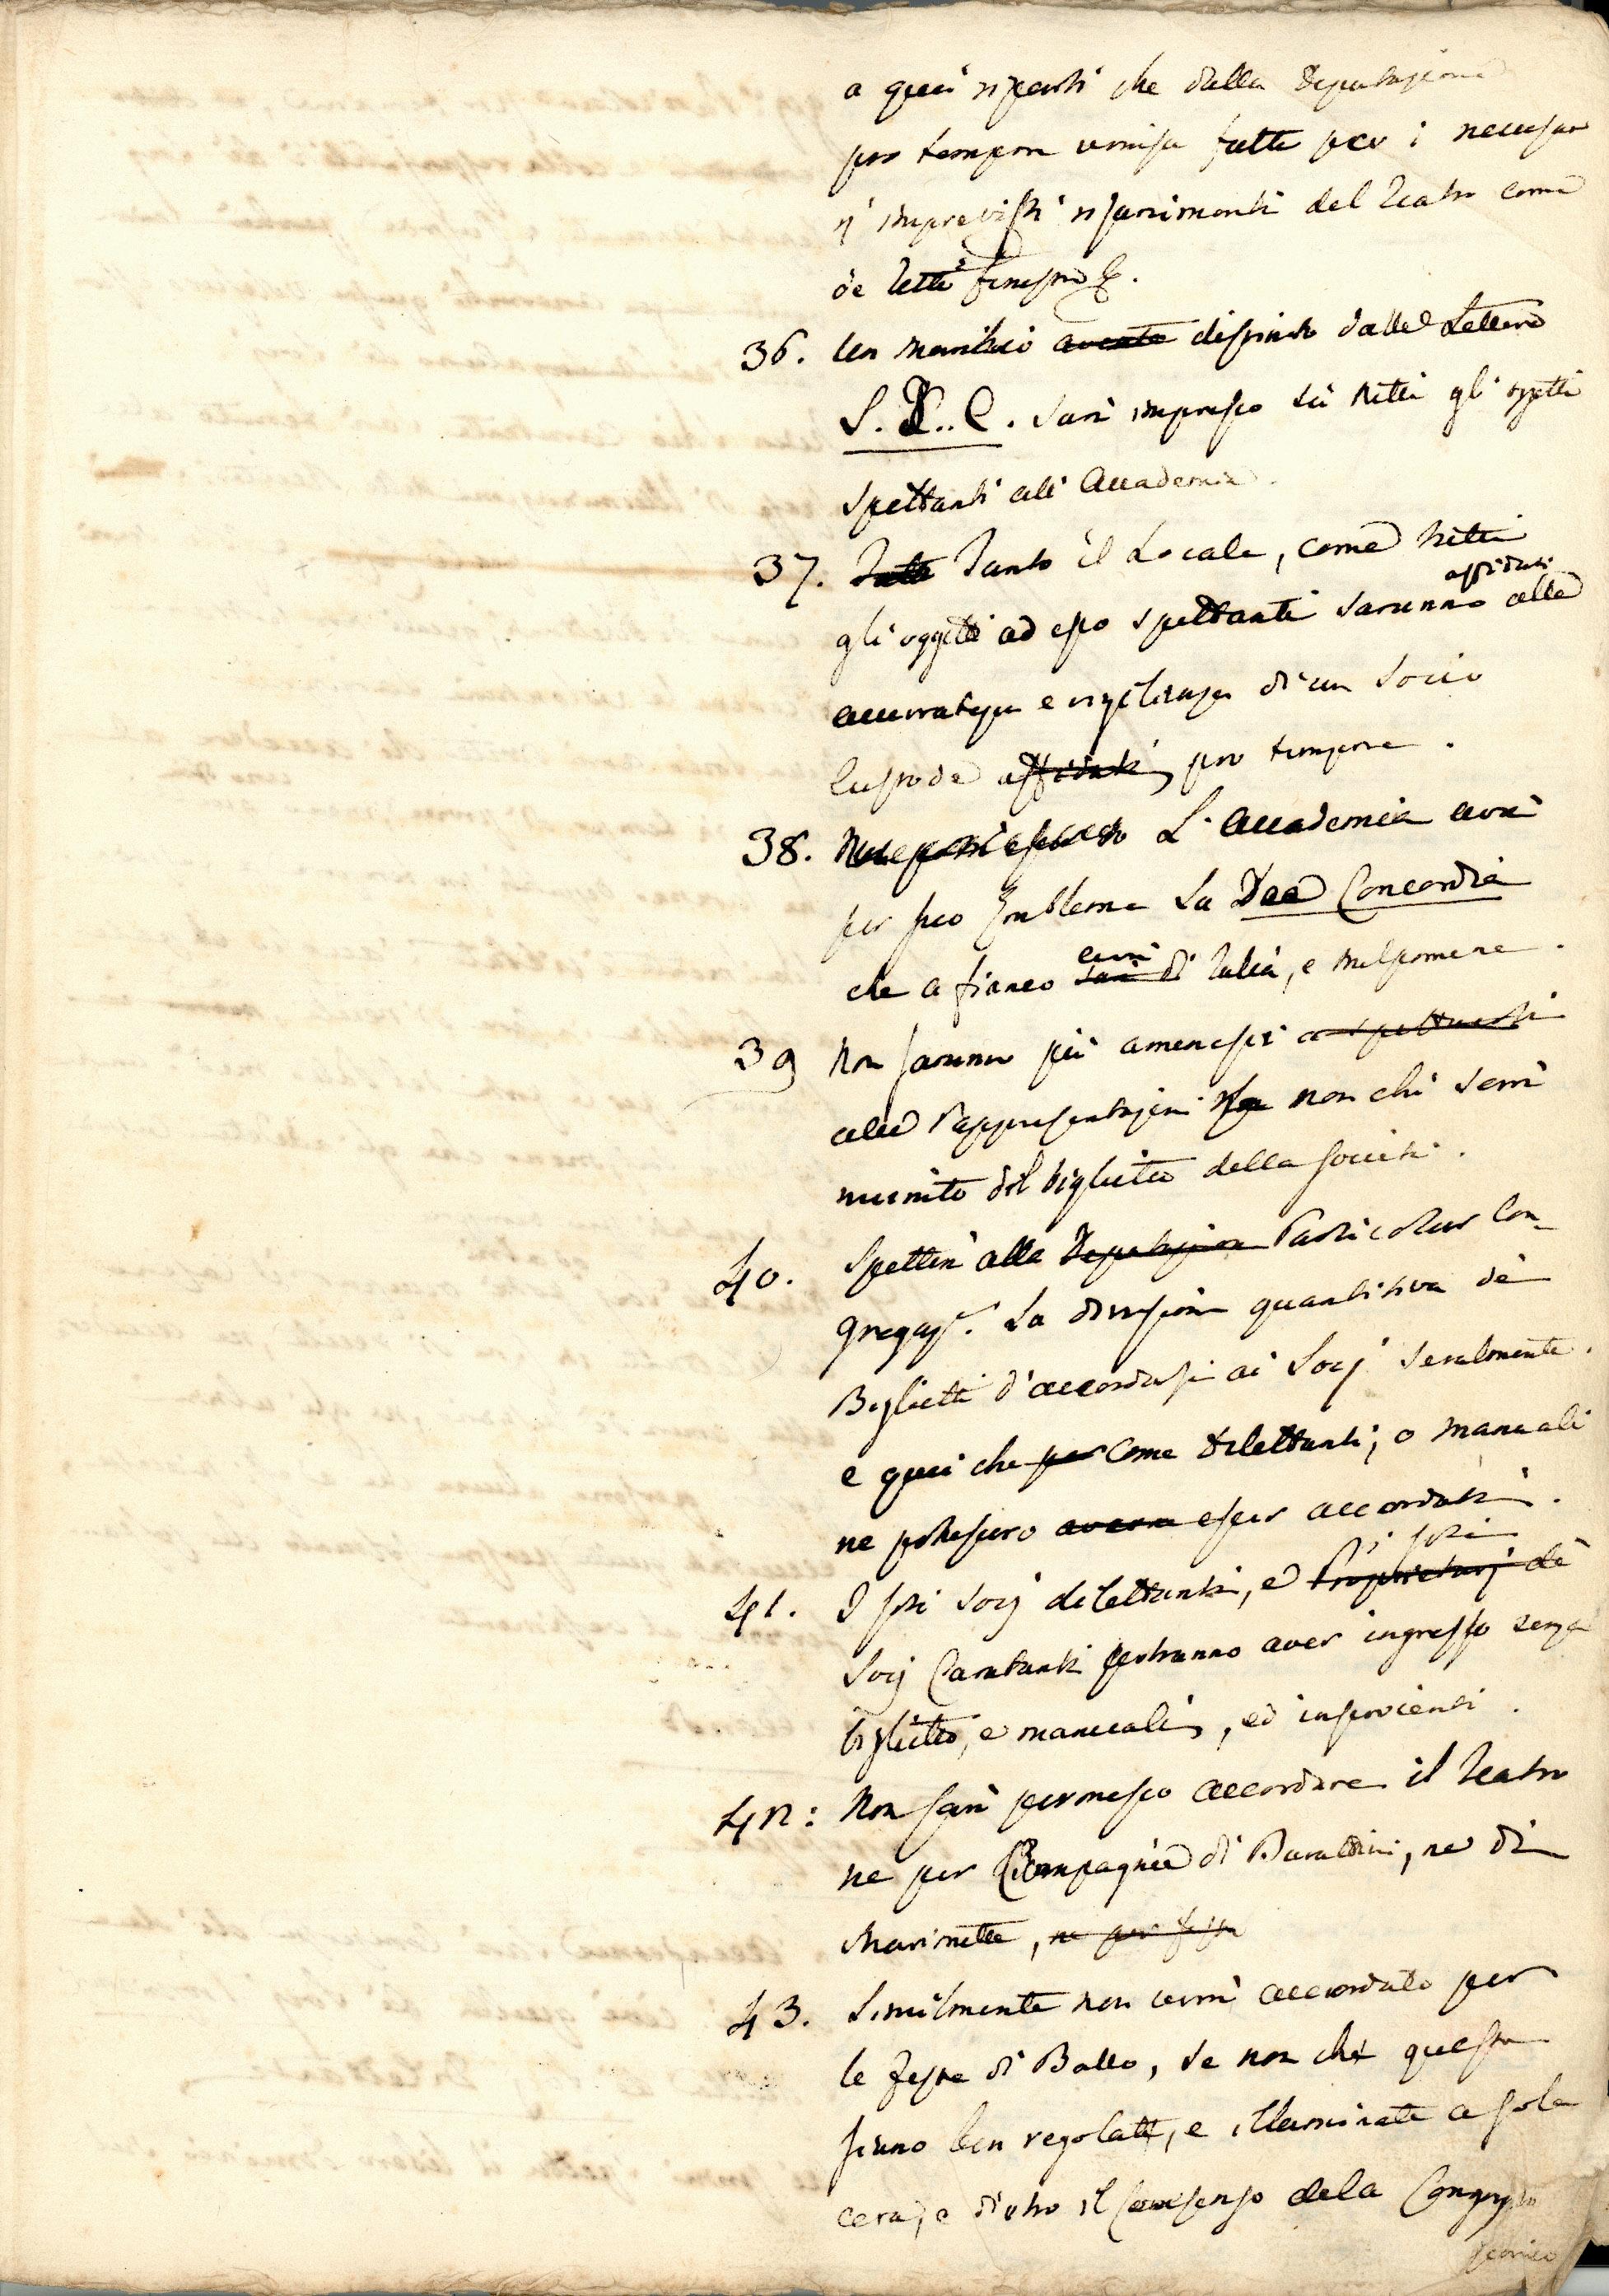 a quei riparti che dalla Deputazione
pro tempore venisse fatti per i necessari
ri imprevisti risarcimenti del Teatro come
de tetti finestre &.
36. Un marchio avente distinto dalle Lettere
S. D. C. sarà impresso sù tutti gli oggetti
spettanti all' Accademia.
37. Tutto Tanto il Locale, come tutti
affidati
gli oggetti ad esso spettanti saranno alla
accuratezza e vigilanza di un Socio
Custode affidati, pro tempore.
38. L'Accademia avrà
per suo Emblema La Dea Concordia
avrà
che a fianco sarà di Talia, e Melpomene.
39 Non saranno più amessi a spettacoli
alle Rappresentazioni se non chi serà
munito del biglietto della società.
40. Spetterà alla Deputazione Particolar Con-
gregaz.e La divisione quantitiva de
Biglietti d'accordarsi ai Socj seralmente.
e quei che per come Dilettanti, o manuali
ne potessero avere esser accordati.
i soli
41. I soli Socj dilettanti, e Proprietarj de
Socj Caratanti potranno aver ingresso senza
biglietto, e manuali, ed inservienti.
42: Non sarà permesso accordare il Teatro
ne per Compagnie di Burattini, ne di
Marionette, ne per feste
43. Similmente non verrà accordato per
le Feste di Ballo, se non che queste
siano ben regolate, e illuminate a sola
cera, e dietro il consenso dela